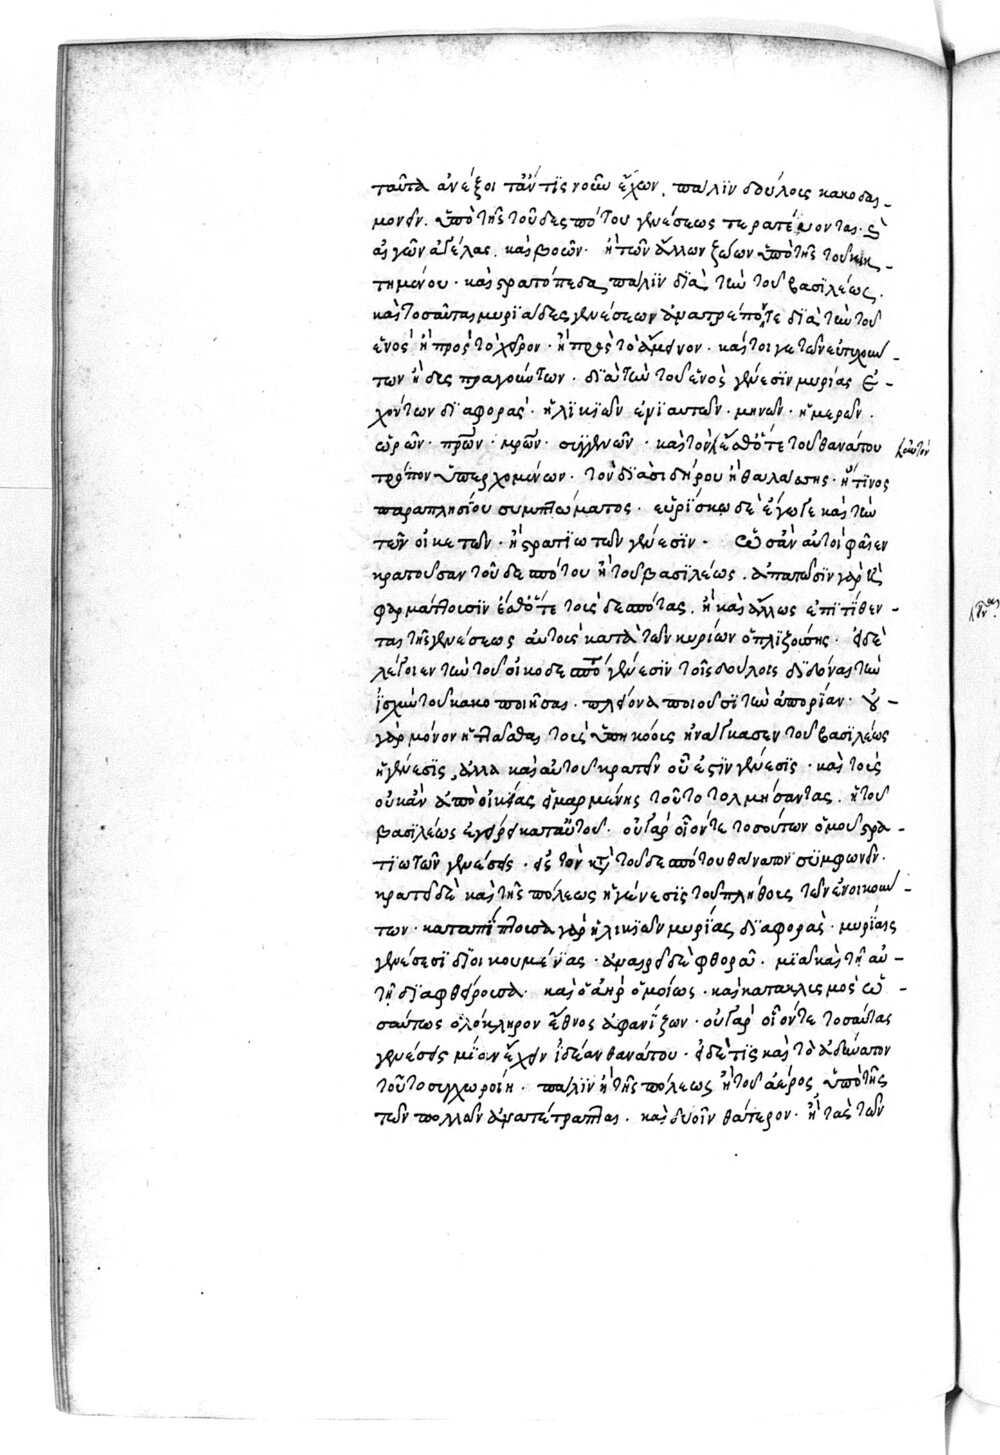 ταῦτα ἀνέξοι τἄν τῒς νοῦν ἔχων. πάλϊν δούλοις κακοδαι_
μονεῖν. ὑπὸ τῆς τοῦ δεσπότου γενέσεως περατρέποντας. καὶ
αἰγῶν ἀγέλας. καὶ βοῶν. ἢ τῶν ἄλλων ζώων ὑπὸ τῆς τοῦ κεκ_
τημένου. καὶ στρατόπεδα πάλϊν δϊὰ τὴν τοῦ βασιλέως.
καὶ τοσαύτας μυρϊάδες γενέσεων ἀνατρέπεσθαι δϊὰ τὴν τοῦ
ἑνὸς ἢ πρὸς τὸ χεῖρον. ἢ πρὸς τὸ ἄμεινον. καίτοι γε τῶν εὐτυχούν_
των ἢ δυσπραγούντων. δϊὰ τὴν τοῦ ἑνὸς γένεσϊν μυρίας ἐ_
χόντων δϊαφοράς. ἡλϊκϊῶν ἐνϊαυτῶν. μηνῶν. ἡμερῶν.
ὡρῶν. πρῶν. μρῶν. συγγενῶν. καὶ τὸν ἔσθ' ὅτε τοῦ θανάτου
ἑαυτὸν
τρόπον ὑπερχομένων. τὸν δϊὰ σιδήρου ἢ θαλάσσης. ἤ τϊνος
παραπλησίου συμπτώματος. εὑρίσκω δὲ ἔγωγε καὶ τὴν
τῶν οἰκετῶν. ἢ στρατϊωτῶν γένεσϊν. ὡς ἂν αὐτοὶ φαῖεν
κρατοῦσαν τοῦ δεσπότου ἢ τοῦ βασϊλέως. ἀπατῶσϊν γὰρ καὶ
φαρμάττουσϊν ἔσθ' ὅτε τοὺς δεσπότας. ἢ καὶ ἄλλως ἐπϊτίθεν_
ται τῆς γενέσεως αὐτοὺς κατὰ τῶν κυρίων ὁπλϊζούσης. εἰ δὲ
λέγοιεν τὴν τοῦ οἰκοδεσπότου γένεσϊν τοῖς δούλοις δϊδόναι τὴν
ἰσχὺν τοῦ κακοποιῆσαι. πλείονα ποιοῦσϊ τὴν ἀπορίαν. οὐ_
γὰρ μόνον ἡττᾶσθαι τοῖς ὑπηκόοις ἠνάγκασεν τοῦ βασιλέως
ἡ γένεσϊς, ἀλλὰ καὶ αὐτοῦ κρατεῖν οὔ ἐστϊν γένεσϊς. καὶ τοὺς
οὐκ ἂν ἀπὸ οἰκείας εἱμαρμένης τοῦτο τολμήσαντας. ἡ τοῦ
βασϊλέως ἐγείρει κατ' αὐτοῦ. οὐ γὰρ οἷόν τε τοσούτων ὁμοῦ στρα_
τϊωτῶν γενέσεις. εἰς τὸν κατὰ τοῦ δεσπότου θάνατον συμφωνεῖν.
κρατεῖ δὲ καὶ τῆς πόλεως ἡ γένεσϊς τοῦ πλήθους τῶν ἐνοικούν_
των. καταπίπτουσα γὰρ ἡλϊκϊῶν μυρίας δϊαφοράς. μυρίαις
γενέσεσϊ δϊοικουμένας. ἀναιρεῖ δὲ φθορᾷ. μϊᾷ καὶ τῇ αὐ_
τῇ δϊαφθείρουσα. καὶ ὁ ἀὴρ ὁμοίως. καὶ κατακλυσμὸς ὡ_
σαύτως ὁλόκληρον ἔθνος ἀφανίζων. οὐ γὰρ οἷόν τε τοσαύτας
γενέσεις μίαν ἔχειν ἰδέαν θανάτου. εἰ δὲ τῒς καὶ τὸ ἀδύνατον
τοῦτο συγχωροίη. πάλϊν ἢ τῆς πόλεως ἢ τοῦ ἀέρος ὑπὸ τῆς
τῶν πολλῶν ἀνατέτραπται. καὶ δυοῖν θάτερον. ἢ τὰς τῶν